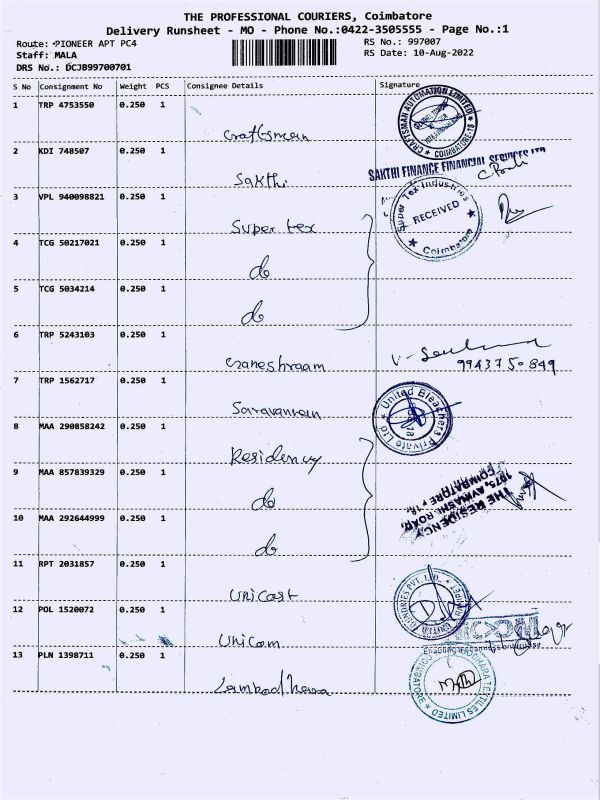 THE PROFESSIONAL COURIERS, Coimbatore
Delivery Runsheet - MO - Phone No.:0422-3505555 - Page No.:1
Route: PIONEER APT PC4
RS No.: 997007
Staff: MALA
RS Date: 10-Aug-2022
DRS No.: DCJB99700701
S No Consignment No Weight PCS Consignee Details Signature
1 TRP 4753550 0.250 1 Craftsman
CRAFTSMAN AUTOMATION LIMITED COIMBATORE
2 KDI 748507 0.250 1 Sakthi
SAKTHI FINANCE FINANCIAL SERVICES LTD
3 VPL 940098821 0.250 1 Super tex
Super Tex Industries RECEIVED Coimbatore
4 TCG 50217021 0.250 1 do
5 TCG 5034214 0.250 1 do
6 TRP 5243103 0.250 1 Ganeshraam
9943750849
7 TRP 1562717 0.250 1 Saravanan
United Bleachers Private Ltd
8 MAA 290858242 0.250 1 Residency
9 MAA 857839329 0.250 1 do
THE RESIDENCY
1075, AVINASHI ROAD,
COIMBATORE - 18.
10 MAA 292644999 0.250 1 do
11 RPT 2031857 0.250 1 Unicast
12 POL 1520072 0.250 1 Unicam
13 PLN 1398711 0.250 1 Lambodhara
TEXTILES LIMITED COIMBATORE